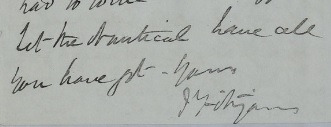 had to
let the Nautical have all
you have got - Yours